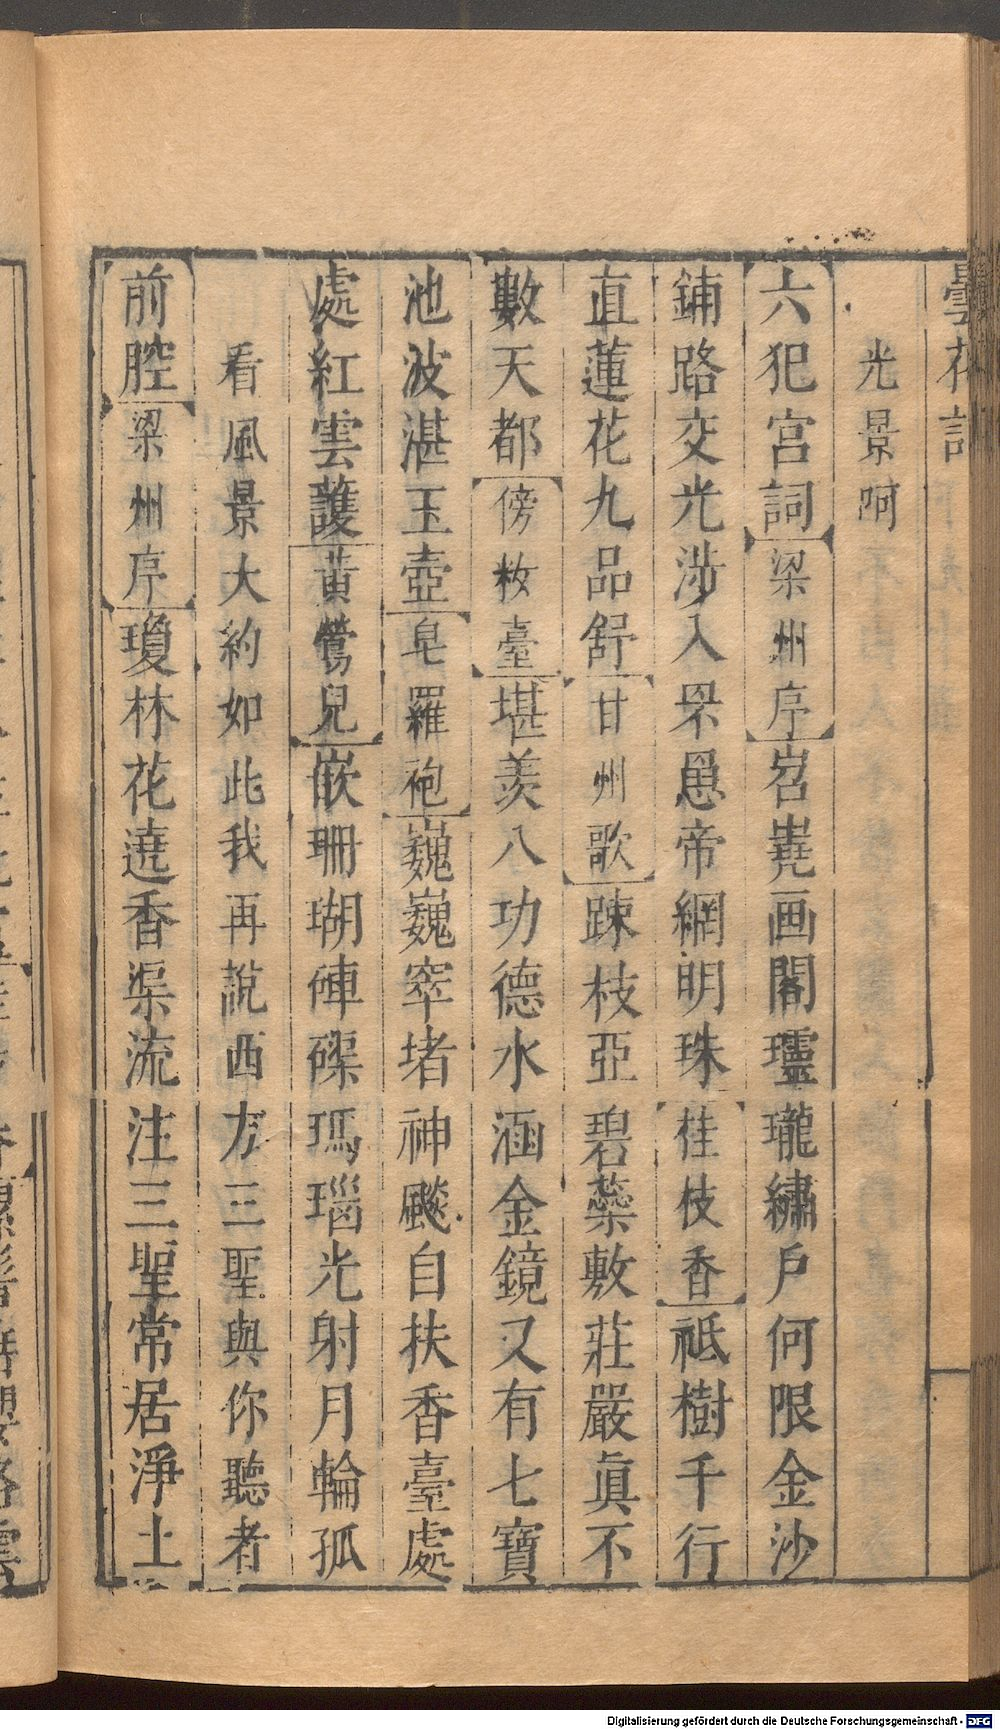 曇花記
光景呵
六犯宮詞梁州序岧嶤画閣瓏繡戶何限金沙
鋪路交光涉入罘罳帝網明珠桂枝香祗樹千行
直蓮花九品舒甘州歌踈枝亞碧蘂敷莊嚴眞不
數天都傍粧臺堪羨八功德水涵金鏡又有七寶
池波湛玉壺皂羅袍巍巍窣堵神飈自扶香臺處
處紅雲護黃鶯兒嵌珊瑚硨磲瑪瑙光射月輪孤
看風景大約如此我再說西方三聖與你聽者
前腔梁州序瓊林花遶香渠流注三聖常居淨土
Digitalisierung gefördert durch die Deutsche Forschungsgemeinschaft - DFG